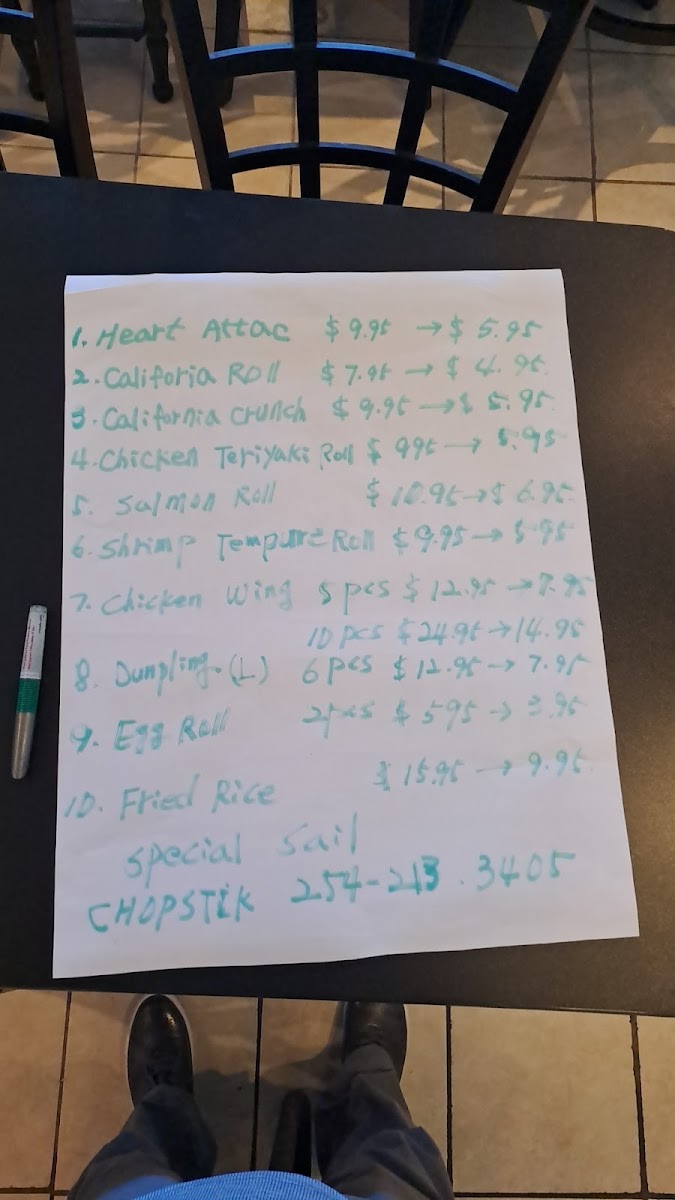 1. Heart Attac $ 9.95 → $ 5.95
2. Califoria Roll $ 7.95 → $ 4.95
3. California crunch $ 9.95 → $ 5.95
4. Chicken Teriyaki Roll $ 995 → 5.95
5. Salmon Roll $ 10.95 → $ 6.95
6. Shrimp Tempure Roll $ 9.95 → 5.95
7. Chicken Wing 5 pcs $ 12.95 → 7.95
10 pcs $ 24.95 → 14.95
8. Dumpling. (L) 6 pcs $ 12.95 → 7.95
9. Egg Roll 2pcs $ 595 → 3.95
10. Fried Rice $ 15.95 → 9.95
special sail
CHOPSTIK 254-213.3405